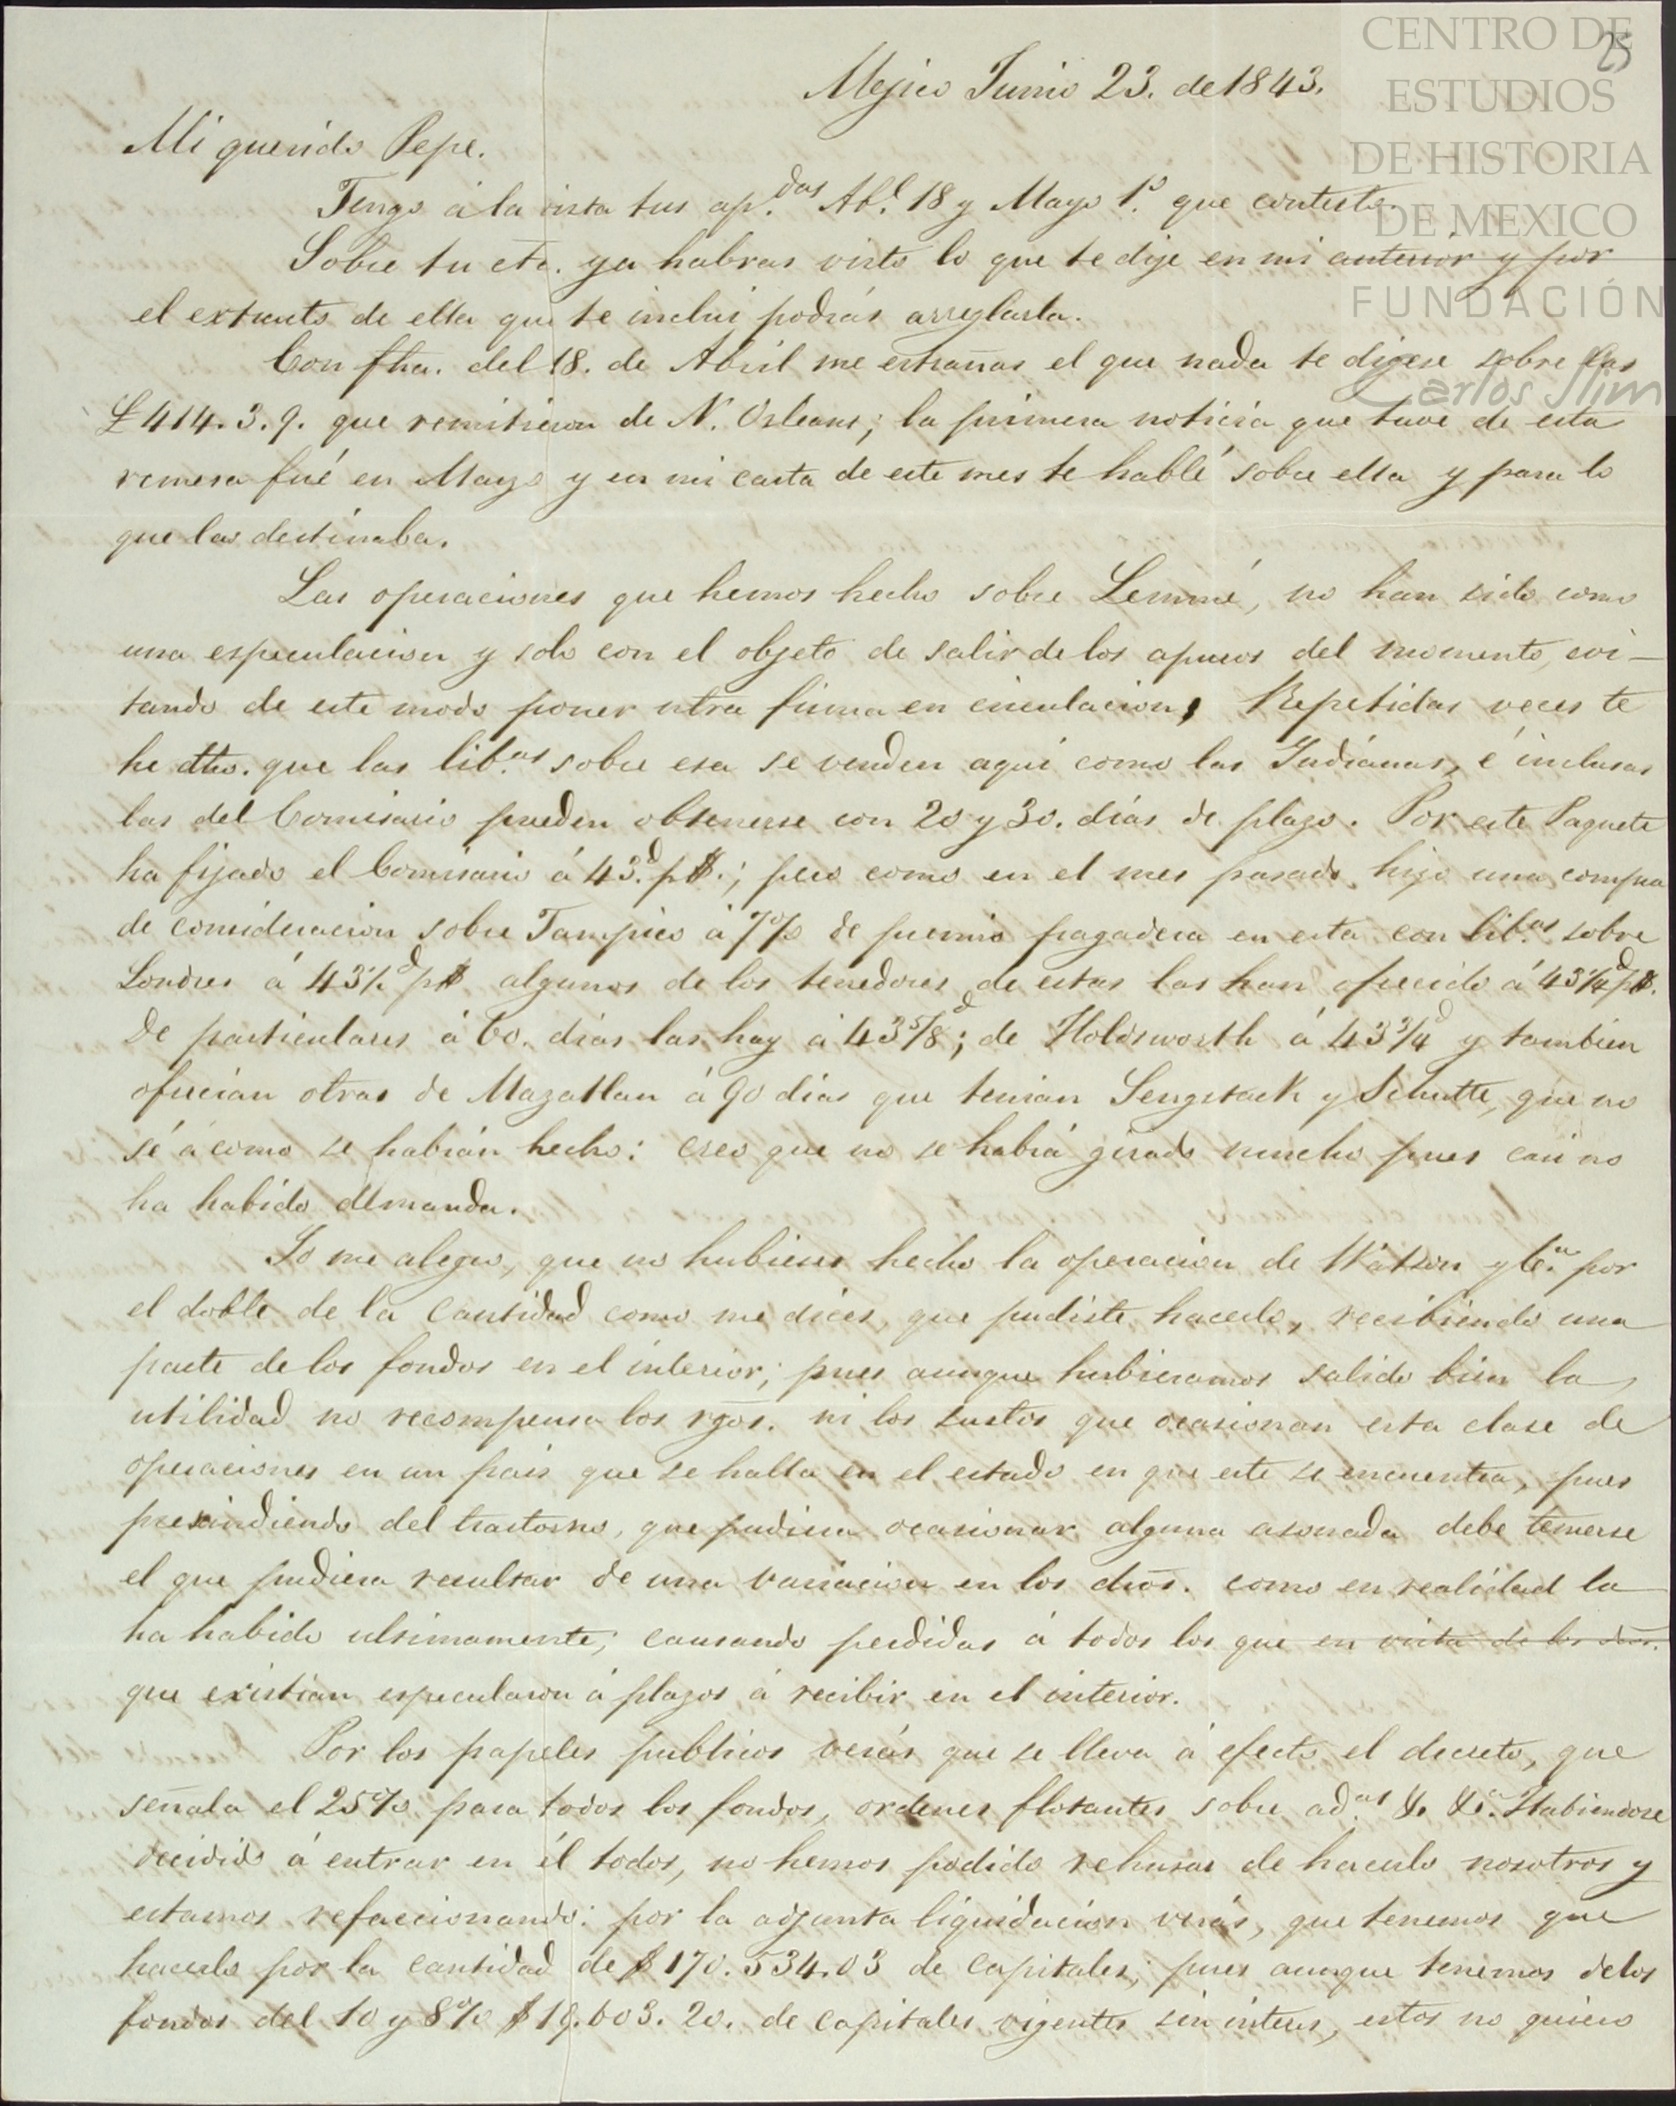 CENTRO DE
ESTUDIOS
DE HISTORIA
DE MEXICO
FUNDACIÓN
Carlos Slim
25
Mejico Junio 23. de 1843.
Mi querido Pepe.
Tengo á la vista tus ap.das Ab.l 18 y Mayo 1.º que contesto.
Sobre tu cta. ya habras visto lo que te dije en mi anterior y por
el extracto de ella que te incluí podrás arreglarla.
Con fha. del 18. de Abril me estrañas el que nada te digese sobre las
£414.3.9. que remitieron de N. Orleans; la primera noticia que tuve de esta
remesa fué en Mayo y en mi carta de este mes te hablé sobre ella y para lo
que las destinaba.
Las operaciones que hemos hecho sobre Lemmé, no han sido como
una especulacion y solo con el objeto de salir de los apuros del momento, evi-
tando de este modo poner ntra firma en circulacion, Repetidas veces te
he dho. que las lib.as sobre esa se venden aqui como las Indianas, é inclusas
las del Comisario pueden obtenerse con 20 y 30. dias de plazo. Por este Paquete
ha fijado el Comisario á 43.d p$.; pero como en el mes pasado hizo una compra
de consideracion sobre Tampico á 7% de premio pagadera en esta con lib.as sobre
Londres á 43½d p$ algunos de los tenedores de estas las han ofrecido á 43¼d p$.
De particulares á 60. dias las hay á 43⅝d; de Holdsworth á 43¾d y tambien
ofrecian otras de Mazatlan á 90 dias que tenian Sengstack y Schutte, que no
sé á como se habrán hecho: creo que no se habrá girado mucho pues casi no
ha habido demanda.
Yo me alegro, que no hubieses hecho la operacion de Watson y C.ª por
el doble de la cantidad como me dices, que pudiste hacerlo, recibiendo una
parte de los fondos en el interior; pues aunque hubieramos salido bien la
utilidad no recompensa los rgos. ni los sustos que ocasionan esta clase de
operaciones en un pais que se halla en el estado en que este se encuentra, pues
prescindiendo del trastorno, que pudiera ocasionar alguna asonada debe temerse
el que pudiera resultar de una variacion en los dros. como en realidad la
ha habido ultimamente; causando perdidas á todos los que en vista de los dros.
que existian especularon á plazos á recibir en el interior.
Por los papeles publicos verás que se lleva á efecto el decreto, que
señala el 25% para todos los fondos, ordenes flotantes sobre ad.as &. &.ª Habiendose
decidido á entrar en él todos, no hemos podido rehusar de hacerlo nosotros y
estamos refaccionando: por la adjunta liquidacion verás, que tenemos que
hacerlo por la cantidad de $170.534.03 de capitales; pues aunque tenemos de los
fondos del 10 y 8% $19.603.20. de capitales vigentes sin interes, estos no quiero